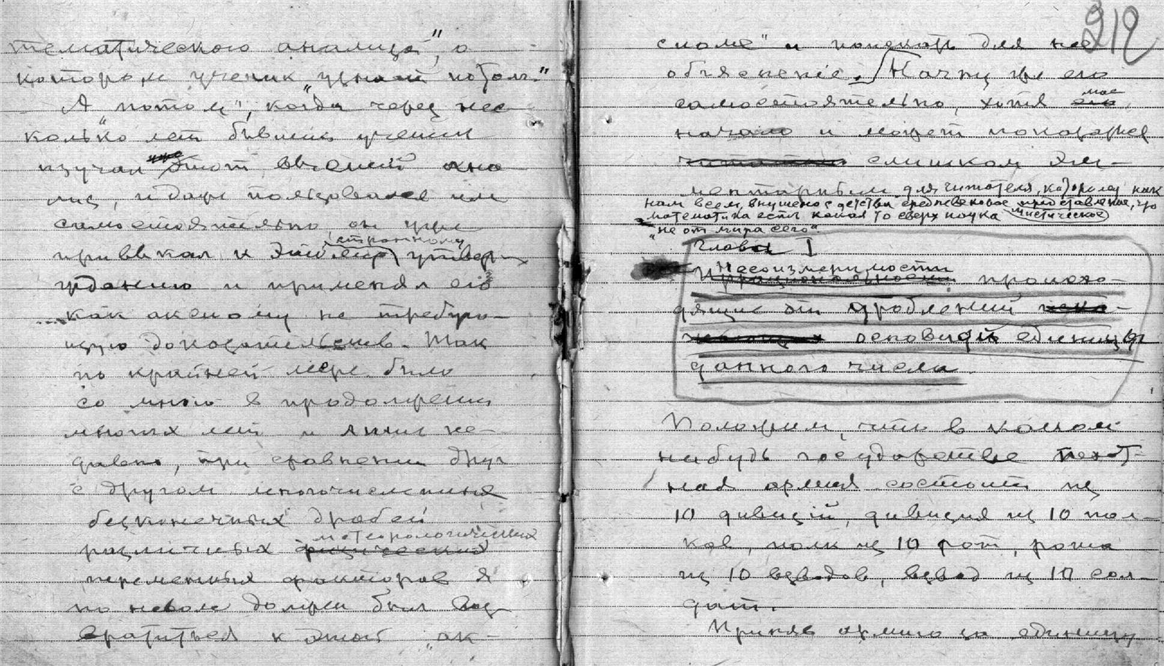 тематического анализа", о
котором ученик узнает потом."
А "потом", когда через нес-
колько лет бывший ученик
изучал этот высший ана-
лиз, и даже пользовался им
самостоятельно он уже
привыкал к этому странному утвер-
ждению и применял его
как аксиому не требую-
щую доказательств. Так
по крайней мере было
со мною в продолжении
многих лет и лишь не-
давно, при сравнении друг
с другом многочисленных
безконечных дробей
различных метеорологических
переменных факторов я
по неволе должен был воз-
вратиться к этой "ак-
212
сиоме" и поискать для нее
объяснение. Начну же его
самостоятельно, хотя мое
начало и может показаться
слишком эле-
ментарным для читателя, которому как
нам всем, внушено с детства средневековое представление, что
математика есть какая то сверх наука мистическая
"не от мира сего"
Глава I
Несоизмеримости происхо-
дящие от дроблений
основной единицы
данного числа.
Положим, что в каком
нибудь государстве пехот-
ная армия состоит из
10 дивизий, дивизия из 10 пол-
ков, полк из 10 рот, рота
из 10 взводов, взвод из 10 сол-
дат.
Приняв армию за единицу